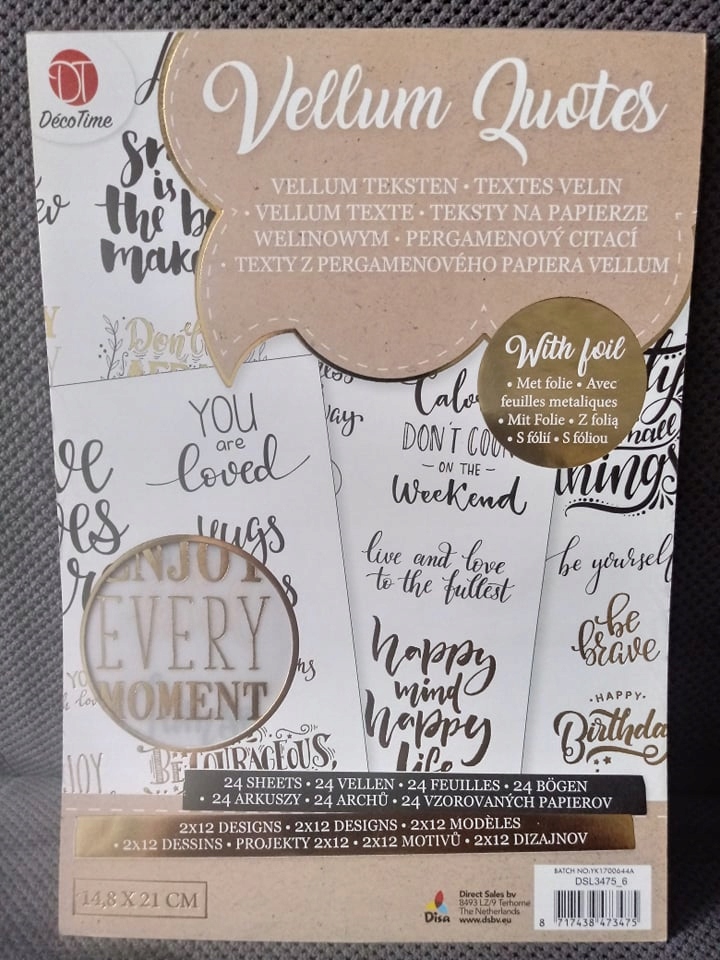 DT
DécoTime
Vellum Quotes
VELLUM TEKSTEN • TEXTES VELIN
• VELLUM TEXTE • TEKSTY NA PAPIERZE
WELINOWYM • PERGAMENOVÝ CITACÍ
• TEXTY Z PERGAMENOVÉHO PAPIERA VELLUM
With foil
• Met folie • Avec
feuilles metaliques
• Mit Folie • Z folią
• S fólií • S fóliou
is
the b
make
Don't
YOU
are
loved
hugs
ENJOY
EVERY
MOMENT
BE COURAGEOUS,
JOY
way
Calo
DON'T COUN
- ON THE -
Weekend
live and love
to the fullest
happy
mind
happy
life
things
be yourself
be
brave
• HAPPY •
Birthda
24 SHEETS • 24 VELLEN • 24 FEUILLES • 24 BÖGEN
• 24 ARKUSZY • 24 ARCHŮ • 24 VZOROVANÝCH PAPIEROV
2x12 DESIGNS • 2x12 DESIGNS • 2x12 MODÈLES
• 2x12 DESSINS • PROJEKTY 2x12 • 2x12 MOTIVŮ • 2x12 DIZAJNOV
14,8 X 21 CM
Disa
Direct Sales bv
8493 LZ/9 Terhorne
The Netherlands
www.dsbv.eu
BATCH NO:YK1700644A
DSL3475_6
8 717438 473475